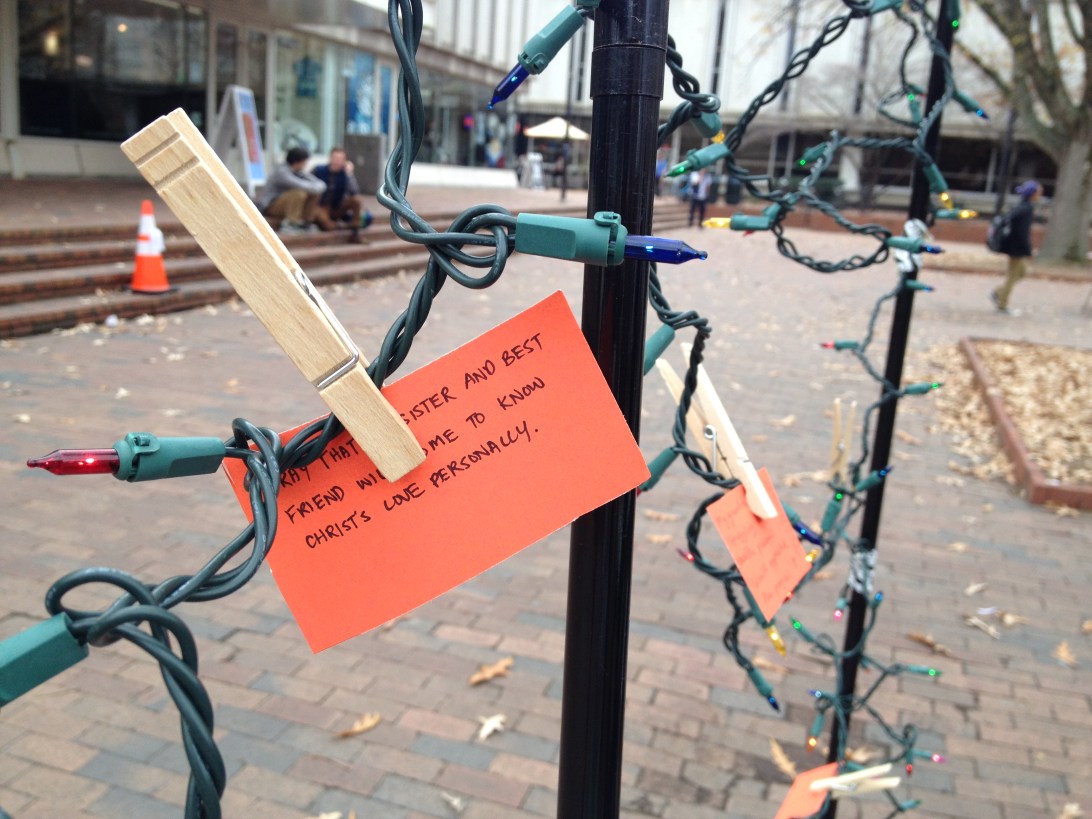 RAY THAT SISTER AND BEST
FRIEND WI OME TO KNOW
CHRIST'S LOVE PERSONALLY.